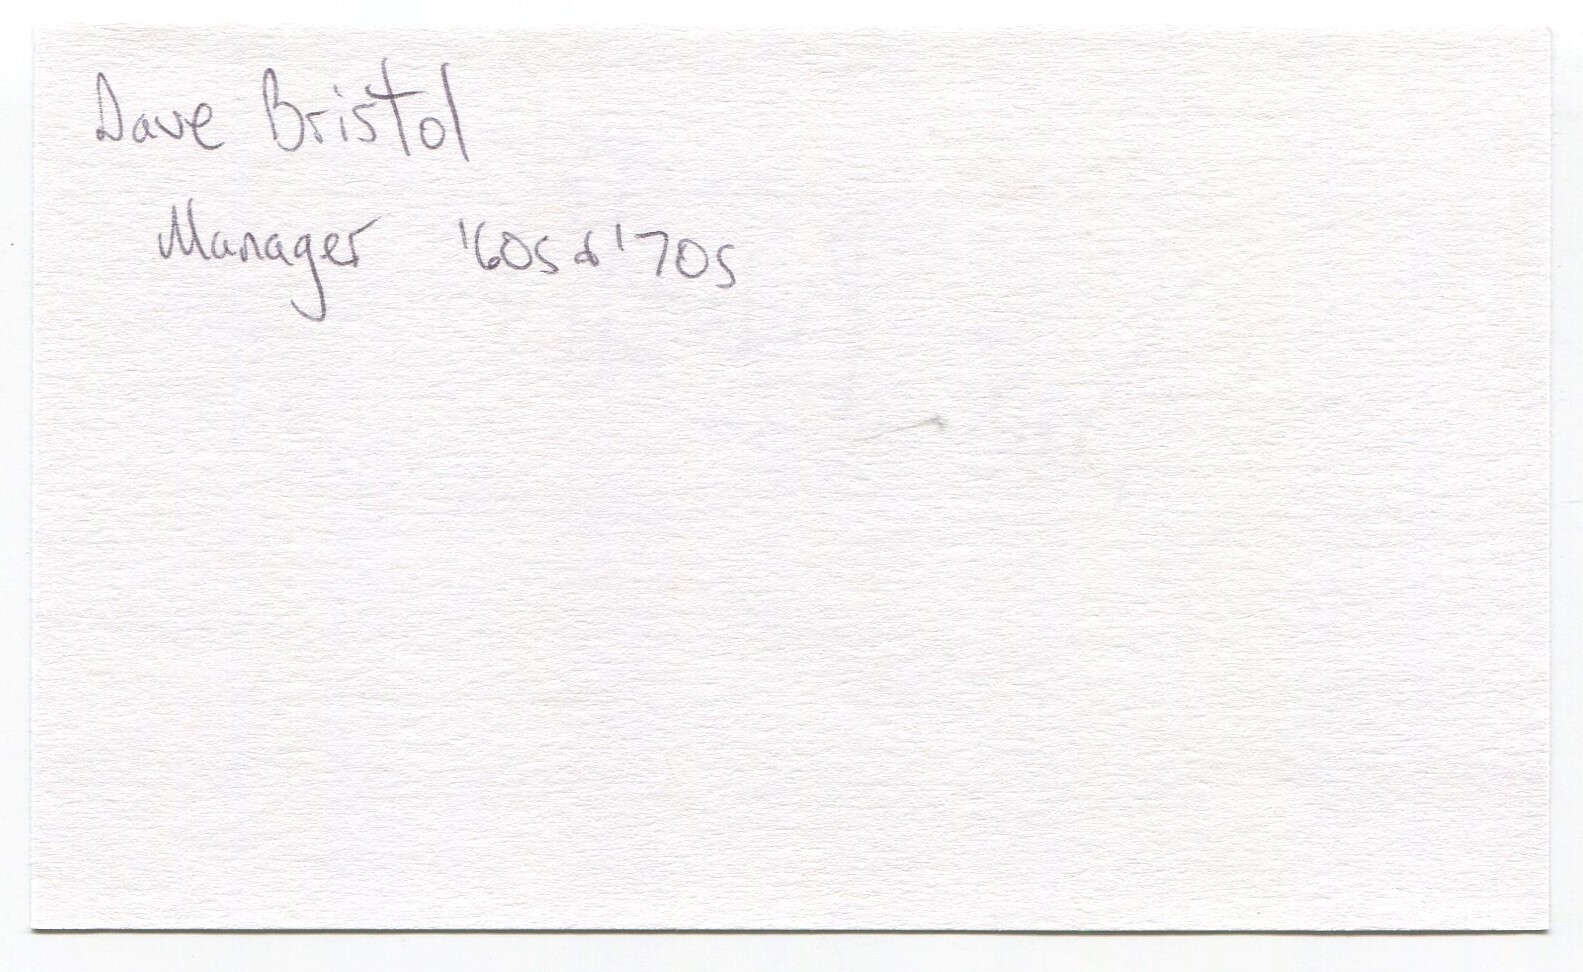 Dave Bristol
Manager '60s & '70s